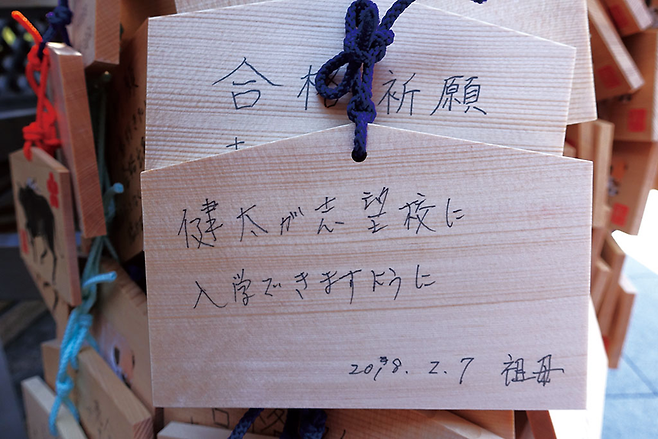 合格祈願
健太が志望校に
入学できますように
2018.2.7 祖母